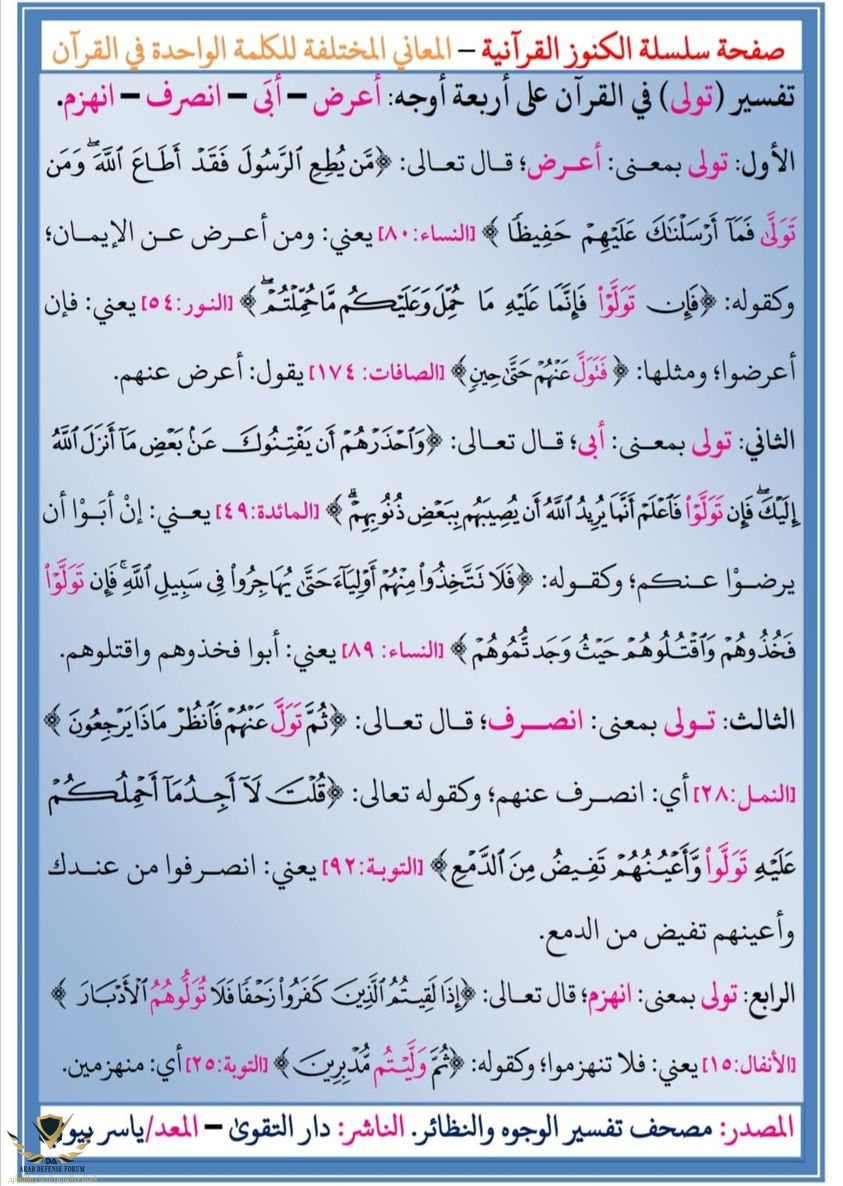 صفحة سلسلة الكنوز القرآنية – المعاني المختلفة للكلمة الواحدة في القرآن
تفسير (تولى) في القرآن على أربعة أوجه: أعرض – أبَى – انصرف – انهزم.
الأول: تولى بمعنى: أعرض؛ قال تعالى: ﴿مَّن يُطِعِ ٱلرَّسُولَ فَقَدْ أَطَاعَ ٱللَّهَۖ وَمَن
تَوَلَّىٰ فَمَآ أَرْسَلْنَـٰكَ عَلَيْهِمْ حَفِيظًا ﴾ [النساء:٨٠] يعني: ومن أعرض عن الإيمان؛
وكقوله: ﴿فَإِن تَوَلَّوْا۟ فَإِنَّمَا عَلَيْهِ مَا حُمِّلَ وَعَلَيْكُم مَّا حُمِّلْتُمْۖ﴾ [النور:٥٤] يعني: فإن
أعرضوا؛ ومثلها: ﴿ فَتَوَلَّ عَنْهُمْ حَتَّىٰ حِينٍ﴾ [الصافات: ١٧٤] يقول: أعرض عنهم.
الثاني: تولى بمعنى: أبى؛ قال تعالى: ﴿وَٱحْذَرْهُمْ أَن يَفْتِنُوكَ عَنۢ بَعْضِ مَآ أَنزَلَ ٱللَّهُ
إِلَيْكَۖ فَإِن تَوَلَّوْا۟ فَٱعْلَمْ أَنَّمَا يُرِيدُ ٱللَّهُ أَن يُصِيبَهُم بِبَعْضِ ذُنُوبِهِمْۗ ﴾ [المائدة:٤٩] يعني: إنْ أبَوْا أن
يرضوْا عنكم؛ وكقوله: ﴿فَلَا تَتَّخِذُوا۟ مِنْهُمْ أَوْلِيَآءَ حَتَّىٰ يُهَاجِرُوا۟ فِى سَبِيلِ ٱللَّهِۚ فَإِن تَوَلَّوْا۟
فَخُذُوهُمْ وَٱقْتُلُوهُمْ حَيْثُ وَجَدتُّمُوهُمْ ﴾ [النساء: ٨٩] يعني: أبوا فخذوهم واقتلوهم.
الثالث: تولى بمعنى: انصرف؛ قال تعالى: ﴿ثُمَّ تَوَلَّ عَنْهُمْ فَٱنظُرْ مَاذَا يَرْجِعُونَ ﴾
[النمل:٢٨] أي: انصرف عنهم؛ وكقوله تعالى: ﴿قُلْتَ لَآ أَجِدُ مَآ أَحْمِلُكُمْ
عَلَيْهِ تَوَلَّوا۟ وَّأَعْيُنُهُمْ تَفِيضُ مِنَ ٱلدَّمْعِ﴾ [التوبة:٩٢] يعني: انصرفوا من عندك
وأعينهم تفيض من الدمع.
الرابع: تولى بمعنى: انهزم؛ قال تعالى: ﴿إِذَا لَقِيتُمُ ٱلَّذِينَ كَفَرُوا۟ زَحْفًا فَلَا تُوَلُّوهُمُ ٱلْأَدْبَارَ ﴾
[الأنفال:١٥] يعني: فلا تنهزموا؛ وكقوله: ﴿ثُمَّ وَلَّيْتُم مُّدْبِرِينَ ﴾ [التوبة:٢٥] أي: منهزمين.
المصدر: مصحف تفسير الوجوه والنظائر. الناشر: دار التقوىٰ – المعد/ياسر
DA
ARAB DEFENSE FORUM